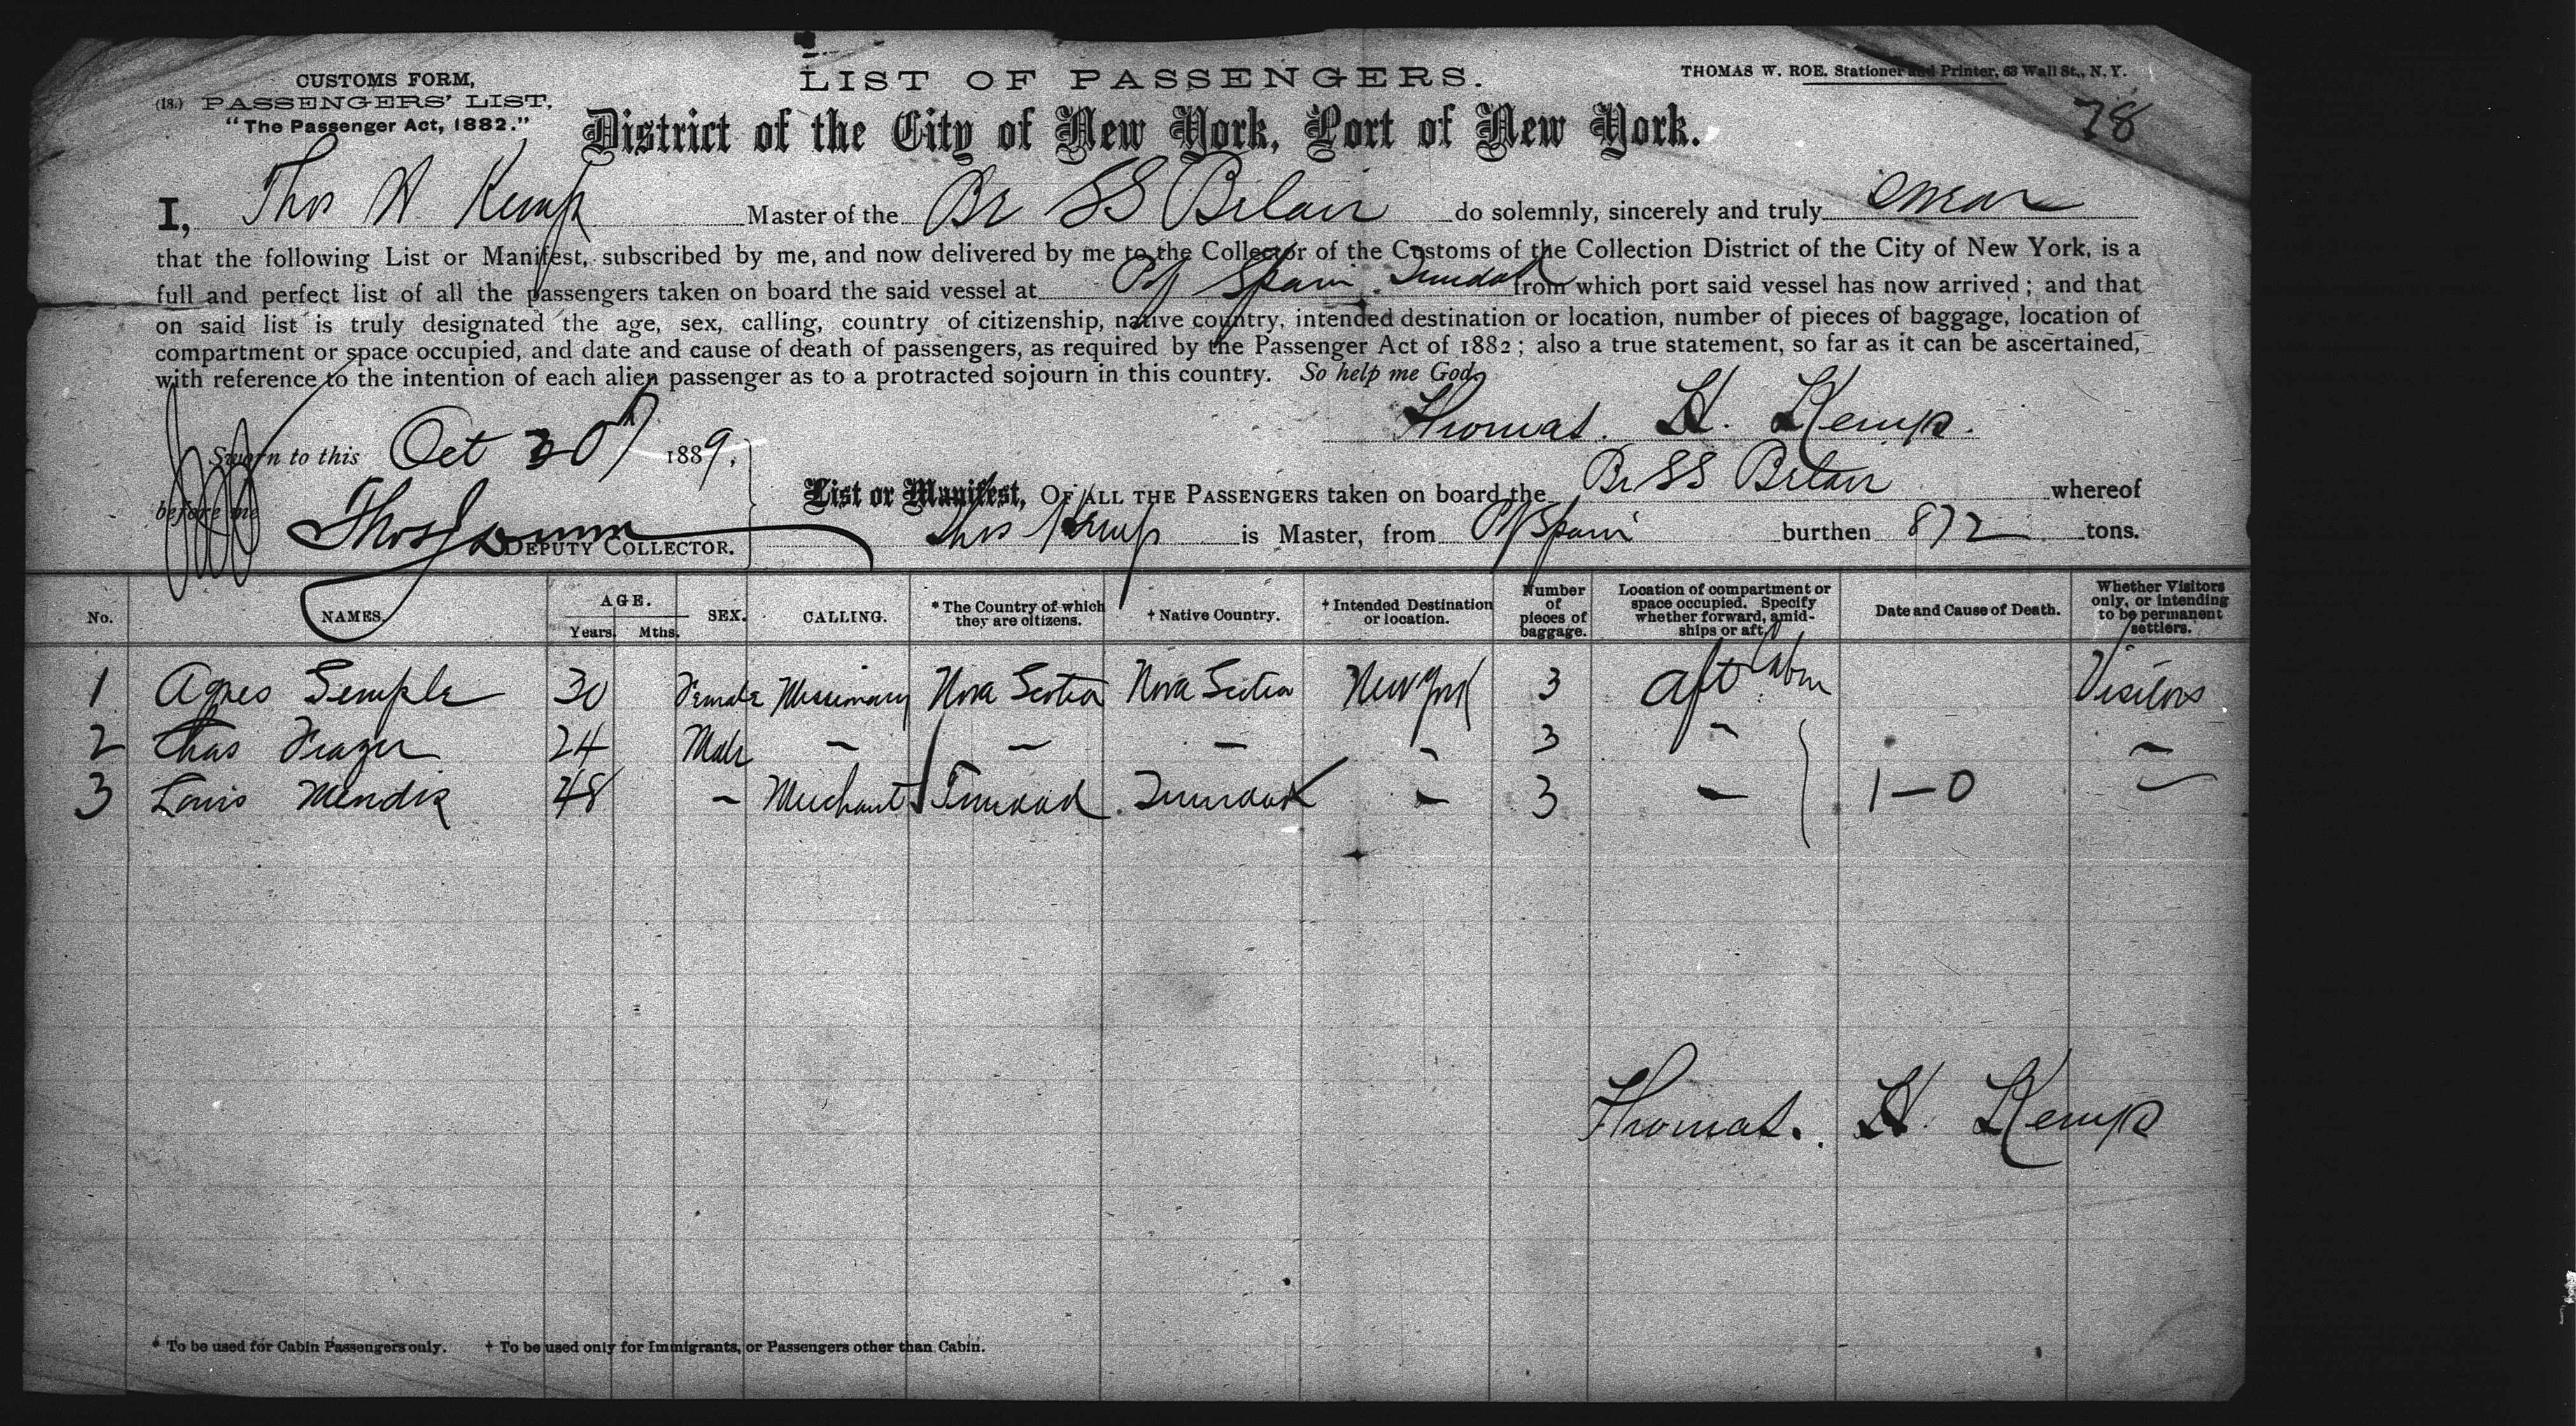 CUSTOMS FORM,
(18.) PASSENGERS' LIST,
"The Passenger Act, 1882."
LIST OF PASSENGERS.
THOMAS W. ROE, Stationer and Printer, 63 Wall St., N. Y.
78
District of the City of New York, Port of New York.
I, Thos H Kemp Master of the Br SS Belair do solemnly, sincerely and truly swear
that the following List or Manifest, subscribed by me, and now delivered by me to the Collector of the Customs of the Collection District of the City of New York, is a
full and perfect list of all the passengers taken on board the said vessel at Pt Spain Trinidad from which port said vessel has now arrived; and that
on said list is truly designated the age, sex, calling, country of citizenship, native country, intended destination or location, number of pieces of baggage, location of
compartment or space occupied, and date and cause of death of passengers, as required by the Passenger Act of 1882; also a true statement, so far as it can be ascertained,
with reference to the intention of each alien passenger as to a protracted sojourn in this country. So help me God.
Thomas. H. Kemp.
Sworn to this Oct 30th 1889,
before me
DEPUTY COLLECTOR.
List or Manifest, OF ALL THE PASSENGERS taken on board the Br SS Belair whereof
Thos Kemp is Master, from Pt Spain burthen 872 tons.
No. NAMES. AGE. Years. Mths. SEX. CALLING. * The Country of which they are citizens. † Native Country. † Intended Destination or location. Number of pieces of baggage. Location of compartment or space occupied. Specify whether forward, amidships or aft. Date and Cause of Death. Whether Visitors only, or intending to be permanent settlers.
1 Agnes Semple 30 Female Missionary Nova Scotia Nova Scotia New York 3 aft Cabin Visitors
2 Chas Frazer 24 Male – – – – 3 – –
3 Louis Mendis 48 – Merchant Trinidad Trinidad – 3 – 1–0 –
Thomas. H. Kemp
* To be used for Cabin Passengers only. † To be used only for Immigrants, or Passengers other than Cabin.